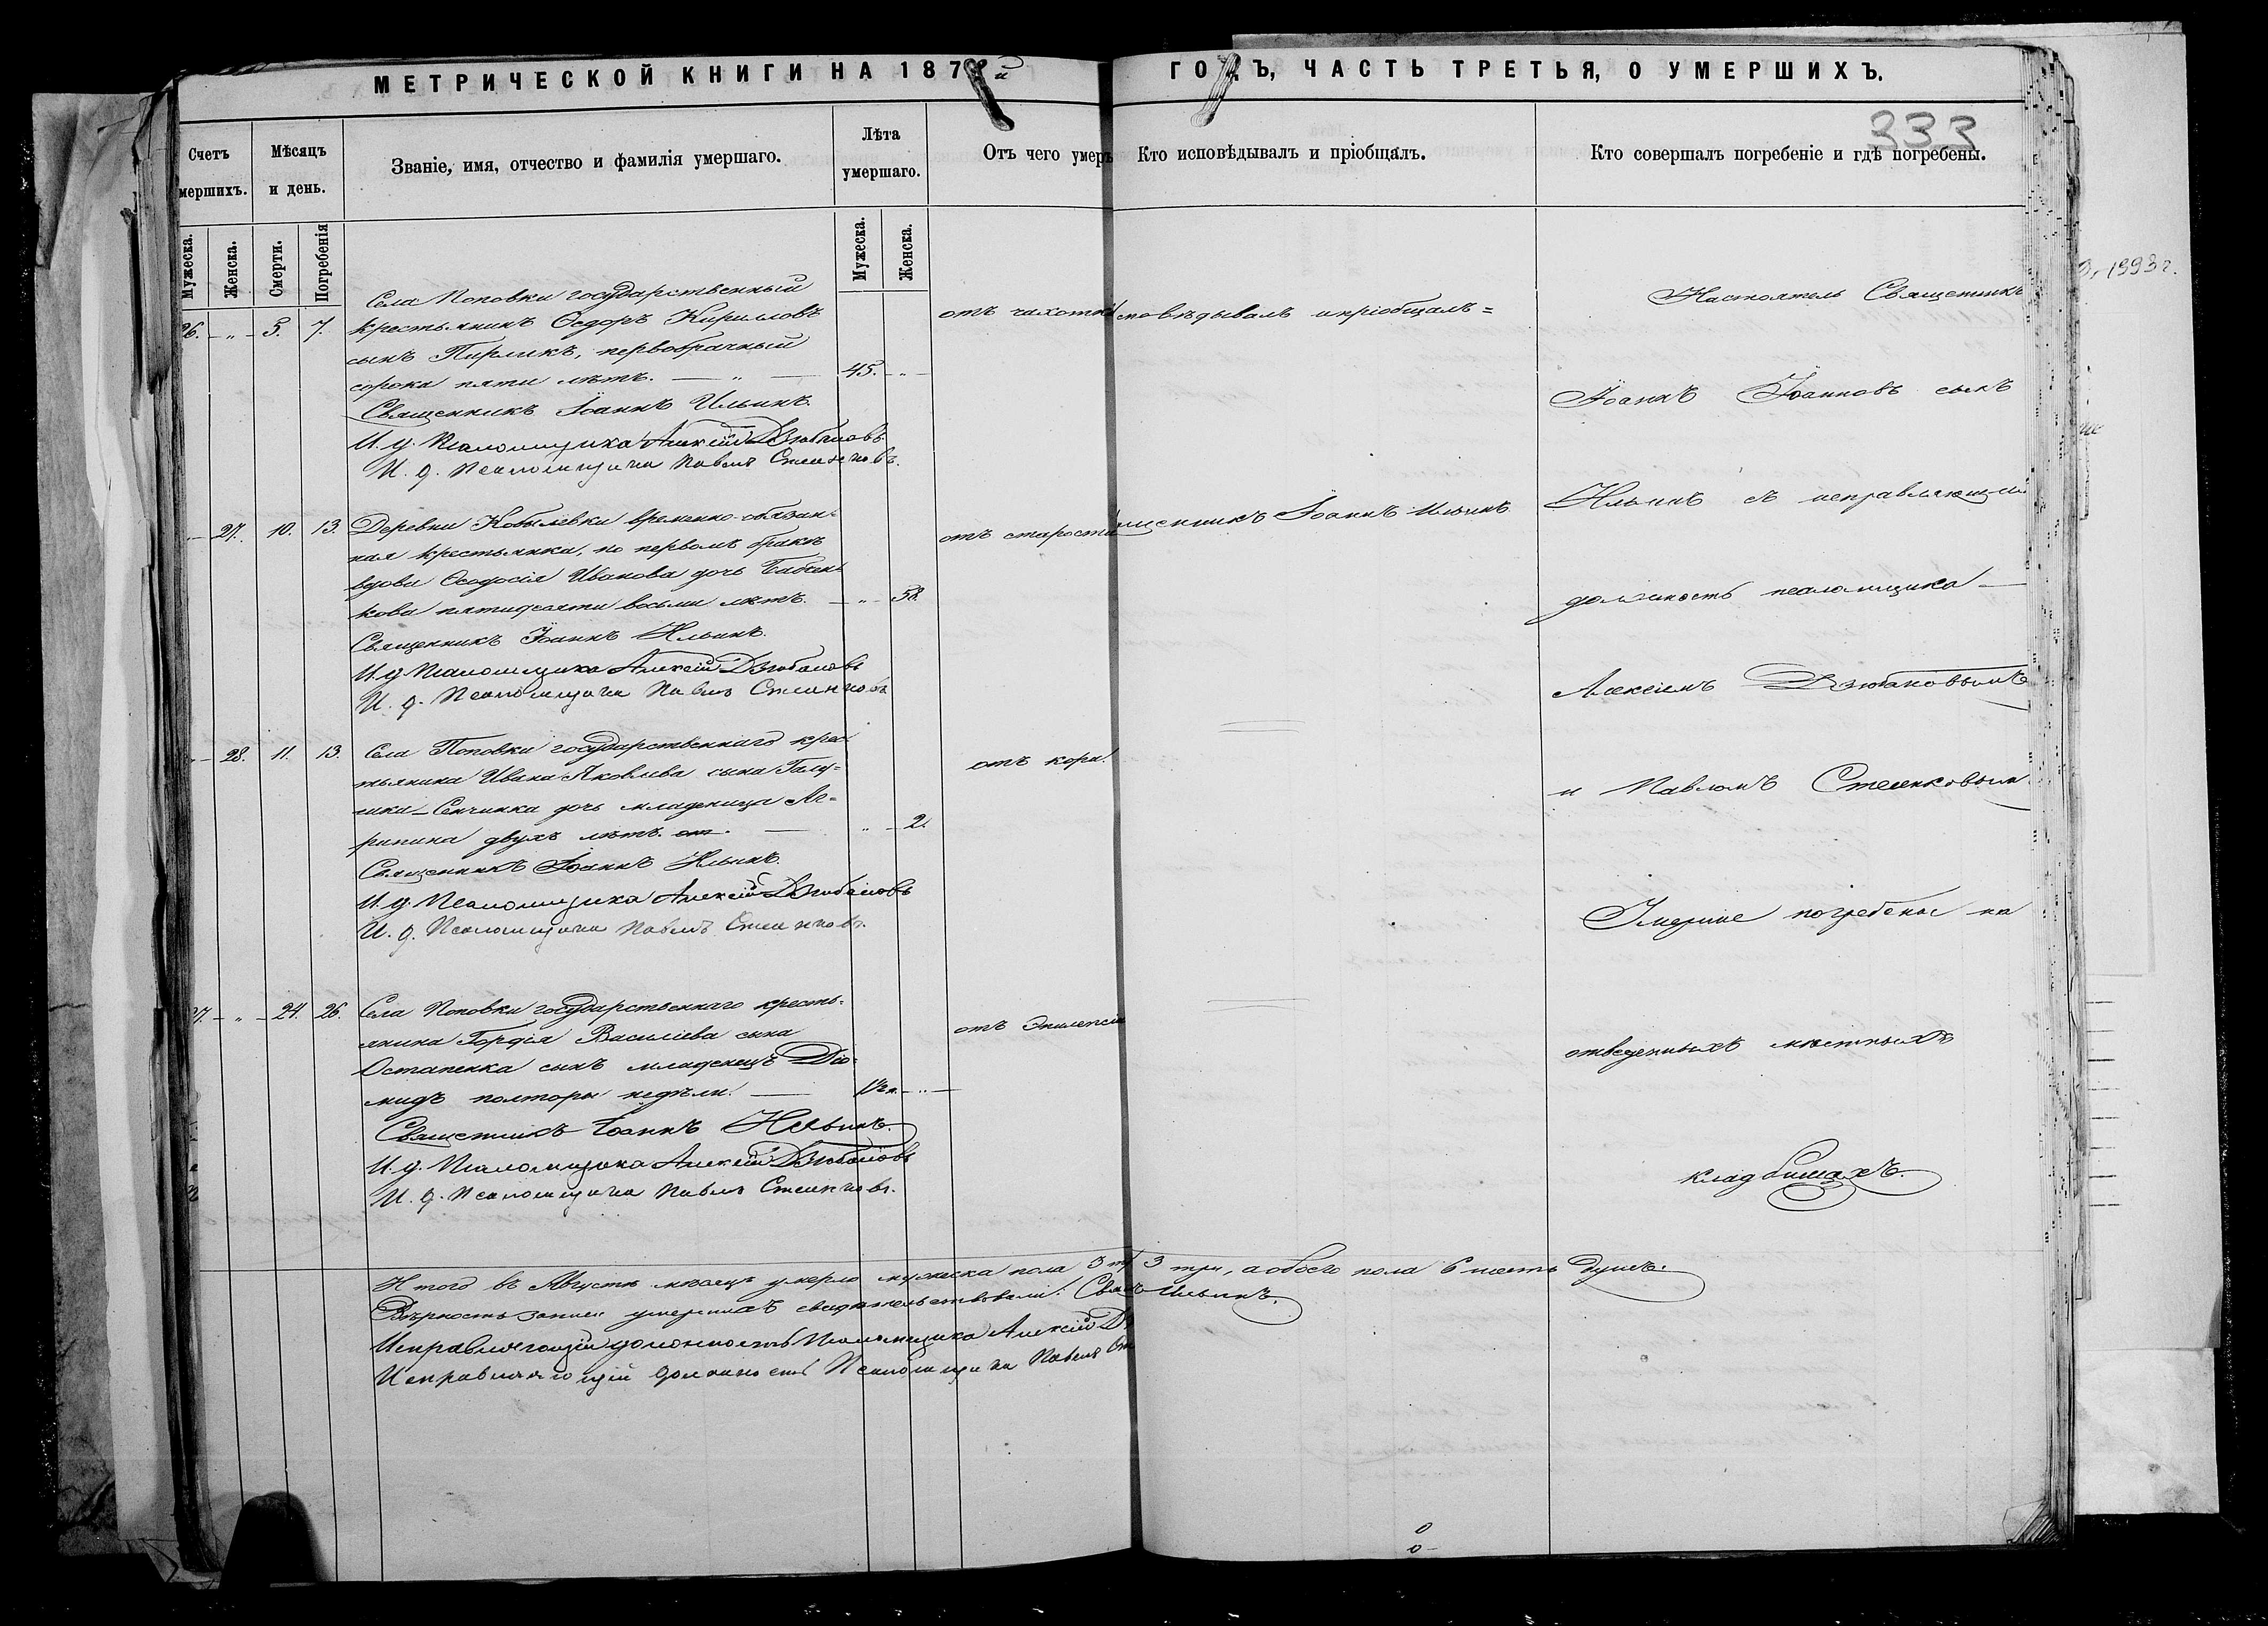 МЕТРИЧЕСКОЙ КНИГИ НА 187
ГОДЪ, ЧАСТЬ ТРЕТЬЯ, О УМЕРШИХЪ.
333
Счетъ
мершихъ.
Мѣсяцъ
и день.
Званіе, имя, отчество и фамилія умершаго.
Лѣта
умершаго.
Отъ чего умеръ
Кто исповѣдывалъ и пріобщалъ.
Кто совершалъ погребеніе и гдѣ погребены.
Мужеска.
Женска.
Смерти.
Погребенія
Мужеска.
Женска.
1993 г.
26. - " - 5. 7.
Села Поповки государственный
крестьянинъ Ѳедоръ Кирилловъ
сынъ Пирликъ, первобрачный
сорока пяти лѣтъ. — " —
45. - " -
отъ чахотки
исповѣдывалъ и пріобщалъ =
Священникъ Іоаннъ Ильинъ.
И. д. Псаломщика Алексій Дзюбановъ.
И. д. Псаломщика Павелъ Стеенковъ.
27. 10. 13.
Деревни Кобылевки временно-обязан-
ная крестьянка, по первомъ бракѣ
вдова Ѳеодосія Иванова дочь Бабен-
кова пятидесяти восьми лѣтъ.
- " - 58.
отъ старости
щенникъ Іоаннъ Ильинъ
Священникъ Іоаннъ Ильинъ.
И. д. Псаломщика Алексій Дзюбановъ
И. д. Псаломщика Павелъ Стеенковъ
28. 11. 13.
Села Поповки государственнаго крес-
тьянина Ивана Яковлева сына Галу-
шка-Сенчинка дочь младеница Аг-
рипина двухъ лѣтъ. —
" - 2.
отъ кори.
Священникъ Іоаннъ Ильинъ.
И. д. Псаломщика Алексій Дзюбановъ
И. д. Псаломщика Павелъ Стеенковъ.
27. - " - 24. 26.
Села Поповки государственнаго кресть-
янина Гордія Василіева сына
Остапенка сынъ младенецъ Діо-
мидъ полторы недѣли. —
1½ н. - " -
отъ Эпилепсіи
Священникъ Іоаннъ Ильинъ.
И. д. Псаломщика Алексій Дзюбановъ
И. д. Псаломщика Павелъ Стеенковъ.
Настоятель Священникъ
Іоаннъ Іоанновъ сынъ
Ильинъ съ исправляющим
должность псаломщика —
Алексіемъ Дзюбановымъ
и Павломъ Стеенковым
Умершіе погребены на
отведенныхъ мѣстныхъ
кладбищахъ.
Итого въ Августѣ мѣсяцѣ умерло мужеска пола 3 три, а обоего пола 6 шесть душъ.
Вѣрность записи умершихъ свидѣтельствовали: Свящ Ильинъ.
Исправляющій должность Псаломщика Алексій Дз
Исправляющій должность Псаломщика Павелъ Ст